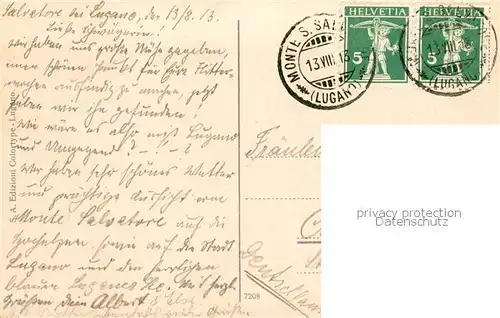 Salvatore bei Lugano, den 13/8.13.
Liebe Schwägerin!
Wir haben uns große Mühe gegeben,
einen schönen Punkt für Eure Flitter-
wochen ausfindig zu machen, jetzt
haben wir ihn gefunden!
Wie wäre es also mit Lugano
und Umgegend? - ! - !
Wir haben sehr schönes Wetter
und prächtige Aussicht vom
Monte Salvatore auf die
Hochalpen sowie auf die Stadt
Lugano und den herrlichen
blauen Luganer See. Mit herzl.
Grüßen Dein Albert
S. A. Edizioni Colortype - Lugano
7208
MONTE S. SALVATORE
13.VIII.13
(LUGANO)
HELVETIA
5
HELVETIA
5
13.VIII.13
(LUGANO)
Fräulein
Deutschland
privacy protection
Datenschutz